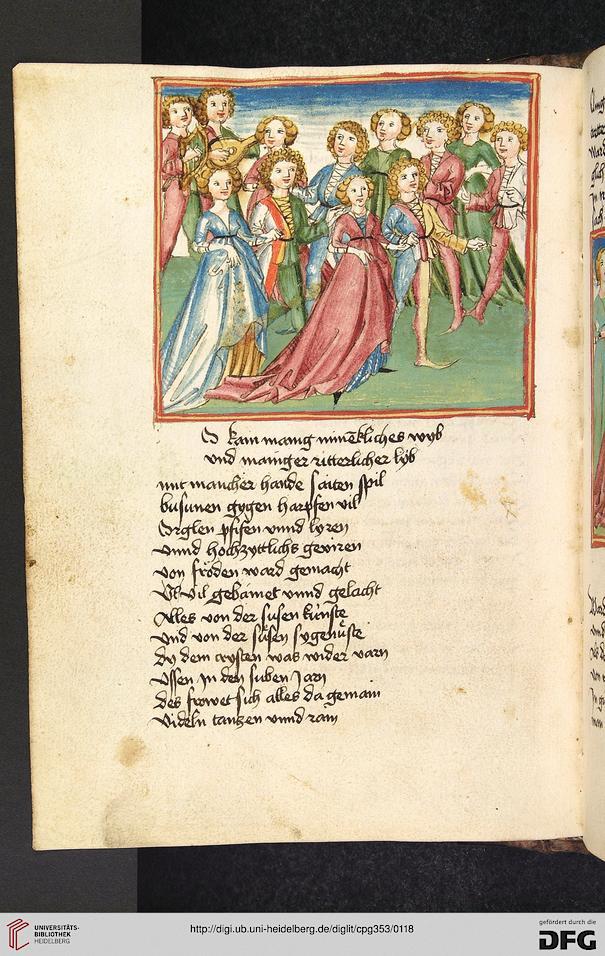 So kam manig minēkliches wyb
vnd mainiger ritterlicher lyb
mit maucher hande saiten spil
busunen gygen harpfen vil
Orglen pfifen vnnd lyren
vnnd hochzyttlichs
von fröden ward gemacht
vil vnnd gelacht
Alles von der susen künste
vnd von der süsen
By dem was wider varn
vssen jn den suben Jarn
des frowet sich alles da gemain
videln tantzen vnnd
UNIVERSITÄTS-
BIBLIOTHEK
HEIDELBERG
http://digi.ub.uni-heidelberg.de/diglit/cpg353/0118
gefördert durch die
DFG